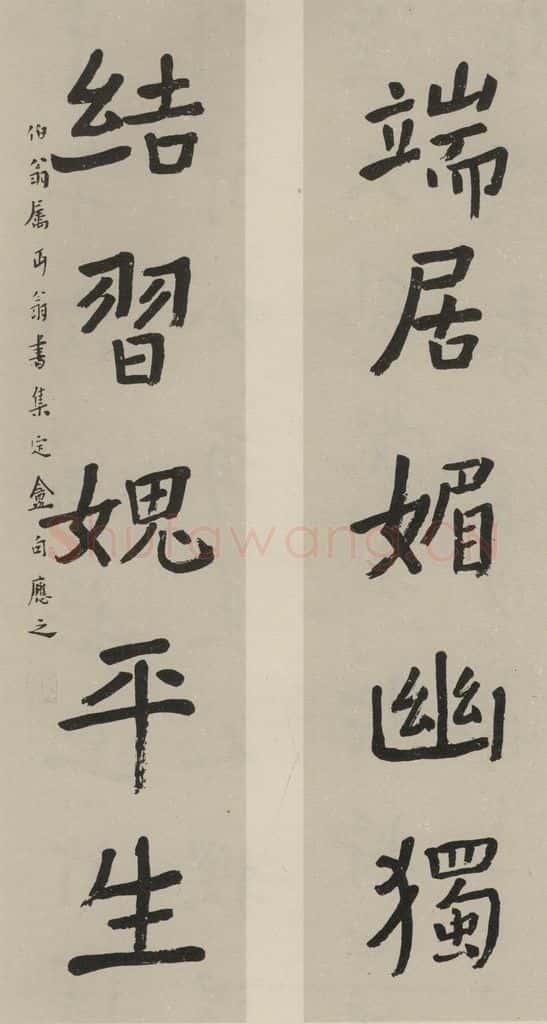 端居媚幽獨
結習媿平生
伯翁屬丏翁書集定盦句應之
Shufawang.CN